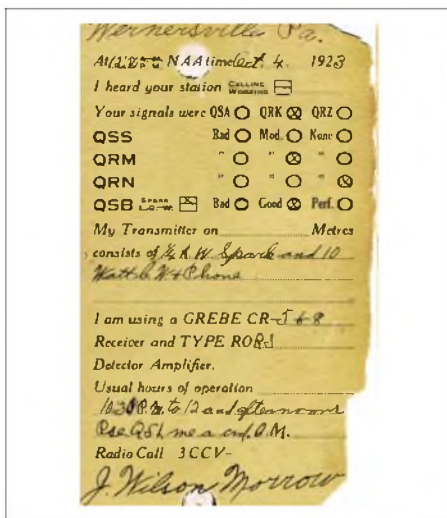 Wernersville Pa.
At NAA time Oct 4. 1923
I heard your station CALLING WORKING
Your signals were QSA QRK QRZ
QSS Bad Mod. None
QRM " " "
QRN " " "
QSB Bad Good Perf.
My Transmitter on Metres
consists of ½ K.W. Spark and 10
Watt C.W. & Phone
I am using a GREBE CR-5 & 8
Receiver and TYPE RORJ
Detector Amplifier.
Usual hours of operation
10:30 P.M. to 12 and afternoons
Pse QSL me a crd. O.M.
Radio Call 3CCV-
J. Wilson Morrow